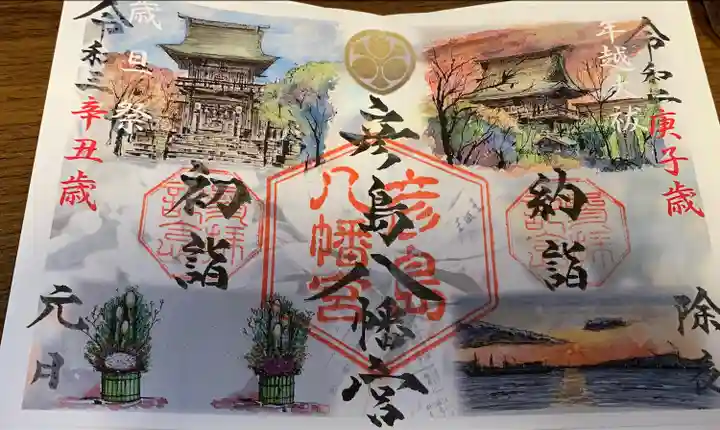 令和二庚子歳
年越大祓
納詣
除夜
彦島八幡宮
彦島
八幡宮
歳旦祭
令和三辛丑歳
初詣
元日